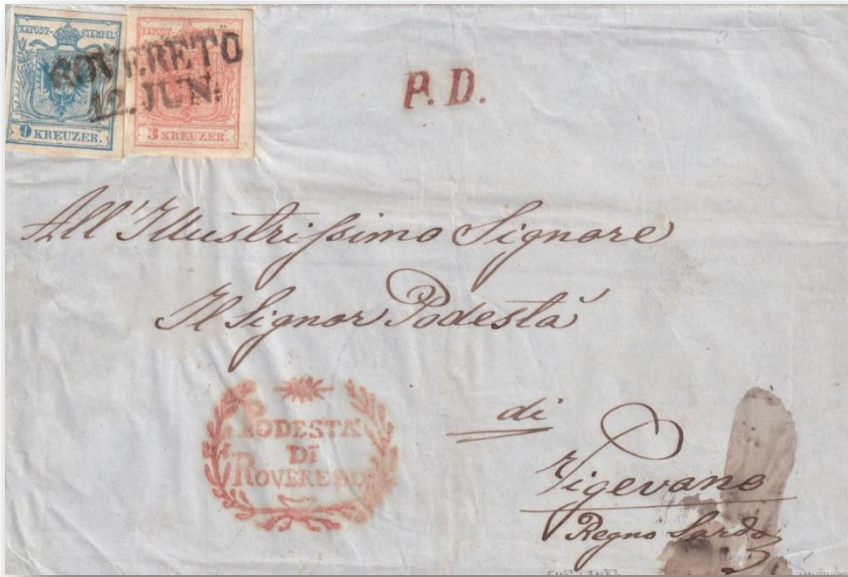 KKPOST-STEMPEL
9 KREUZER.
KKPOST-STEMPEL
3 KREUZER.
ROVERETO
12. JUN:
P. D.
All'Illustrissimo Signore
Il Signor Podestà
di
Vigevano
Regno Sardo
PODESTA'
DI
ROVEREDO